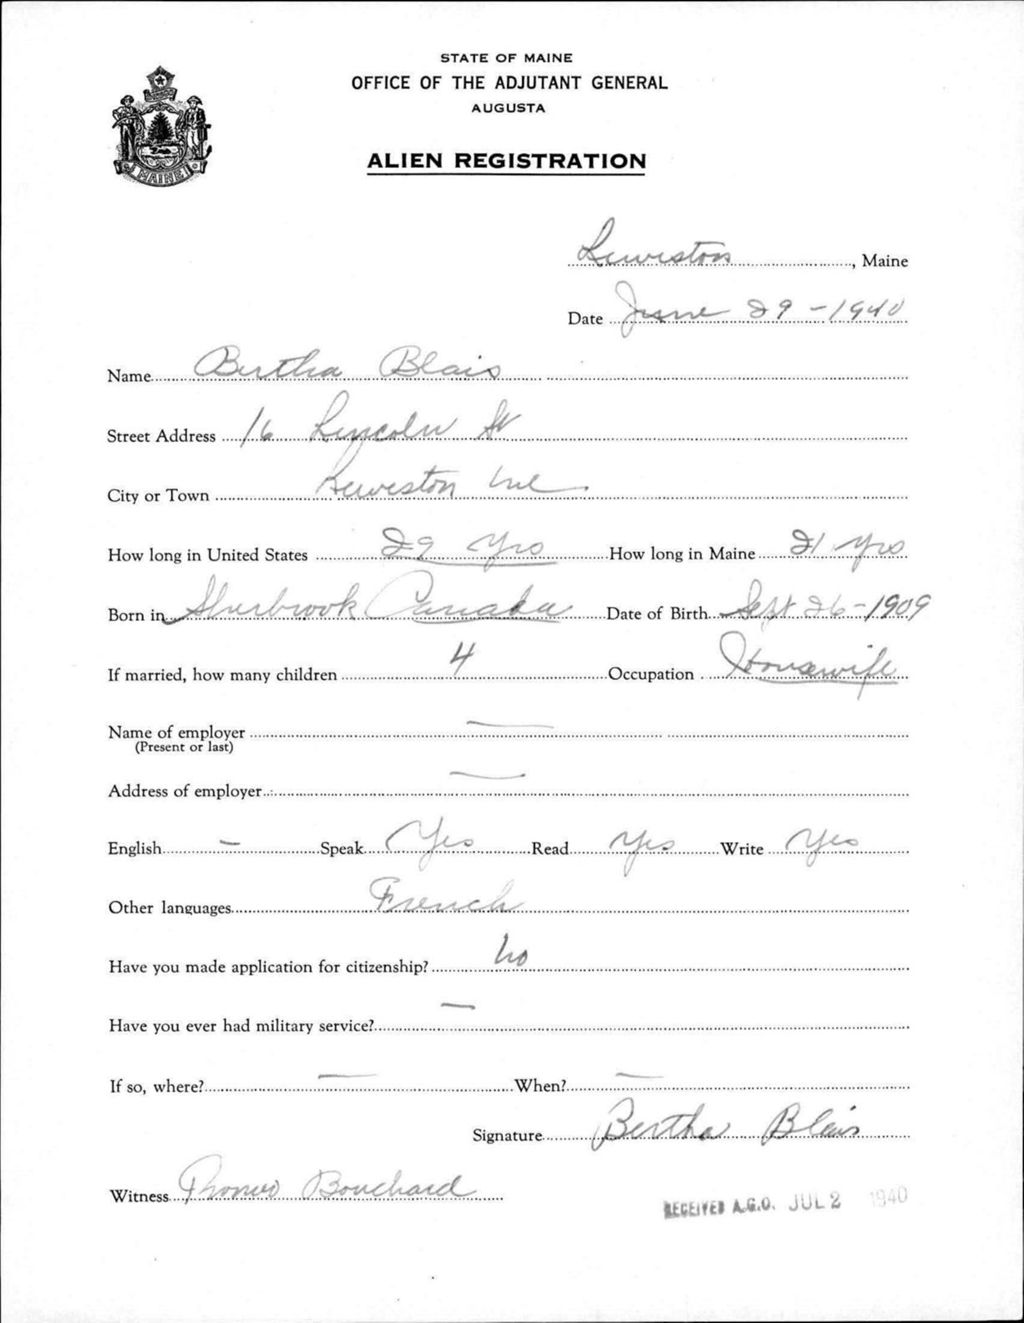 STATE OF MAINE
OFFICE OF THE ADJUTANT GENERAL
AUGUSTA
ALIEN REGISTRATION
MAINE
Lewiston, Maine
Date June 29-1940
Name Bertha Blais
Street Address 16 Lincoln St
City or Town Lewiston Me
How long in United States 29 yrs How long in Maine 21 yrs
Born in Sherbrook Canada Date of Birth Sept 26-1909
If married, how many children 4 Occupation Housewife
Name of employer —
(Present or last)
Address of employer —
English — Speak Yes Read Yes Write Yes
Other languages French
Have you made application for citizenship? no
Have you ever had military service? —
If so, where? — When? —
Signature Bertha Blais
Witness Bouchard
RECEIVED A.G.O. JUL 2 1940